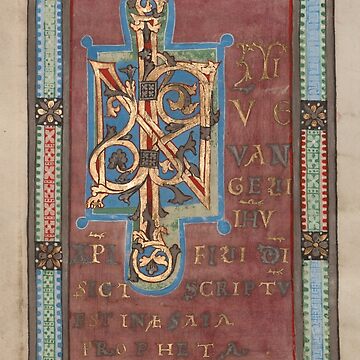 IN ITI
V E
VAN
GELII
IHV
XPI FILII DI
SICT SCRIPTV
EST IN ESAIA
PROPHETA